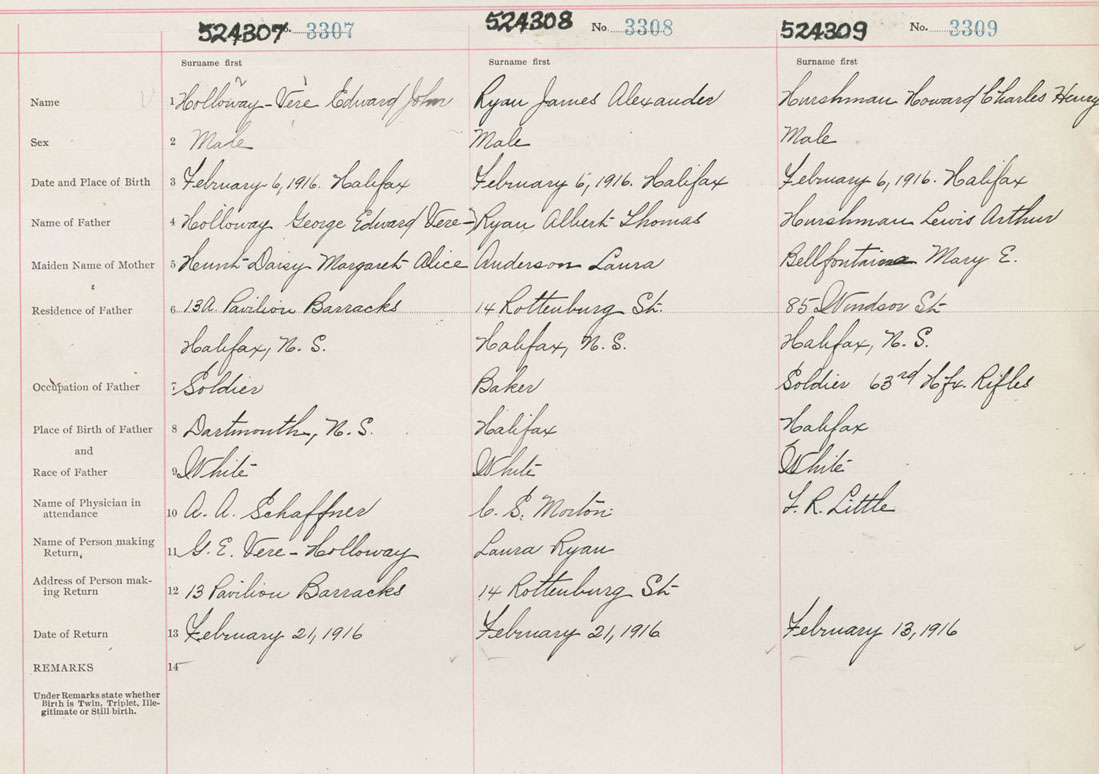 524307 No. 3307 524308 No 3308 524309 No. 3309
Surname first Surname first Surname first
Name 1 Holloway-Vere Edward John Ryan James Alexander Hurshman Howard Charles Henry
Sex 2 Male Male Male
Date and Place of Birth 3 February 6, 1916. Halifax February 6, 1916. Halifax February 6, 1916. Halifax
Name of Father 4 Holloway George Edward Vere- Ryan Albert Thomas Hurshman Lewis Arthur
Maiden Name of Mother 5 Hunt Daisy Margaret Alice Anderson Laura Bellfontaine Mary E.
Residence of Father 6 13A. Pavilion Barracks 14 Rottenburg St. 85 Windsor St
Halifax, N.S. Halifax, N.S. Halifax, N.S.
Occupation of Father 7 Soldier Baker Soldier 63rd Hfx. Rifles
Place of Birth of Father 8 Dartmouth, N.S. Halifax Halifax
and
Race of Father 9 White White White
Name of Physician in
attendance 10 A. A. Schaffner C. S. Morton F. R. Little
Name of Person making
Return, 11 G. E. Vere-Holloway Laura Ryan
Address of Person mak-
ing Return 12 13 Pavilion Barracks 14 Rottenburg St
Date of Return 13 February 21, 1916 February 21, 1916 February 13, 1916
REMARKS 14
Under Remarks state whether
Birth is Twin, Triplet, Ille-
gitimate or Still birth.